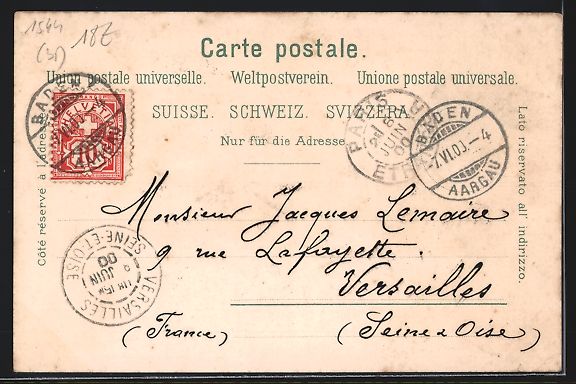 1544
(31)
18Z
Carte postale.
Union postale universelle. Weltpostverein. Unione postale universale.
SUISSE. SCHWEIZ. SVIZZERA.
Nur für die Adresse.
Côté réservé à l'adresse.
Lato riservato all' indirizzo.
HELVETIA
BADEN
AARGAU
PARIS
JUIN
BADEN
7.VI.00.-4
AARGAU
Monsieur Jacques Lemaire
9 rue Lafayette.
Versailles
(France) (Seine & Oise)
VERSAILLES
SEINE-ET-OISE
JUIN
00